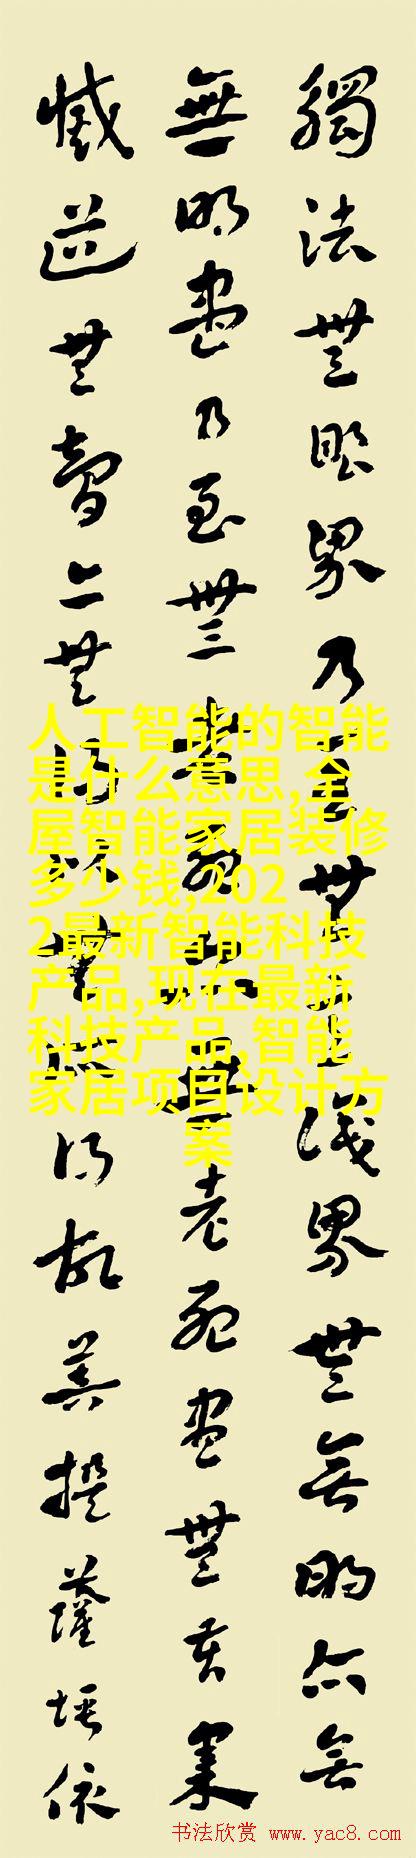 觸法無眼界乃至無意識界無無明亦無
無明盡乃至無老死亦無老死盡無苦集
滅道無智亦無得以無所得故菩提薩埵依
人工智能的智能
是什么意思,全
屋智能家居装修
多少钱,202
2最新智能科技
产品,现在最新
科技产品,智能
家居项目设计方
案
书法欣赏 www.yac8.com